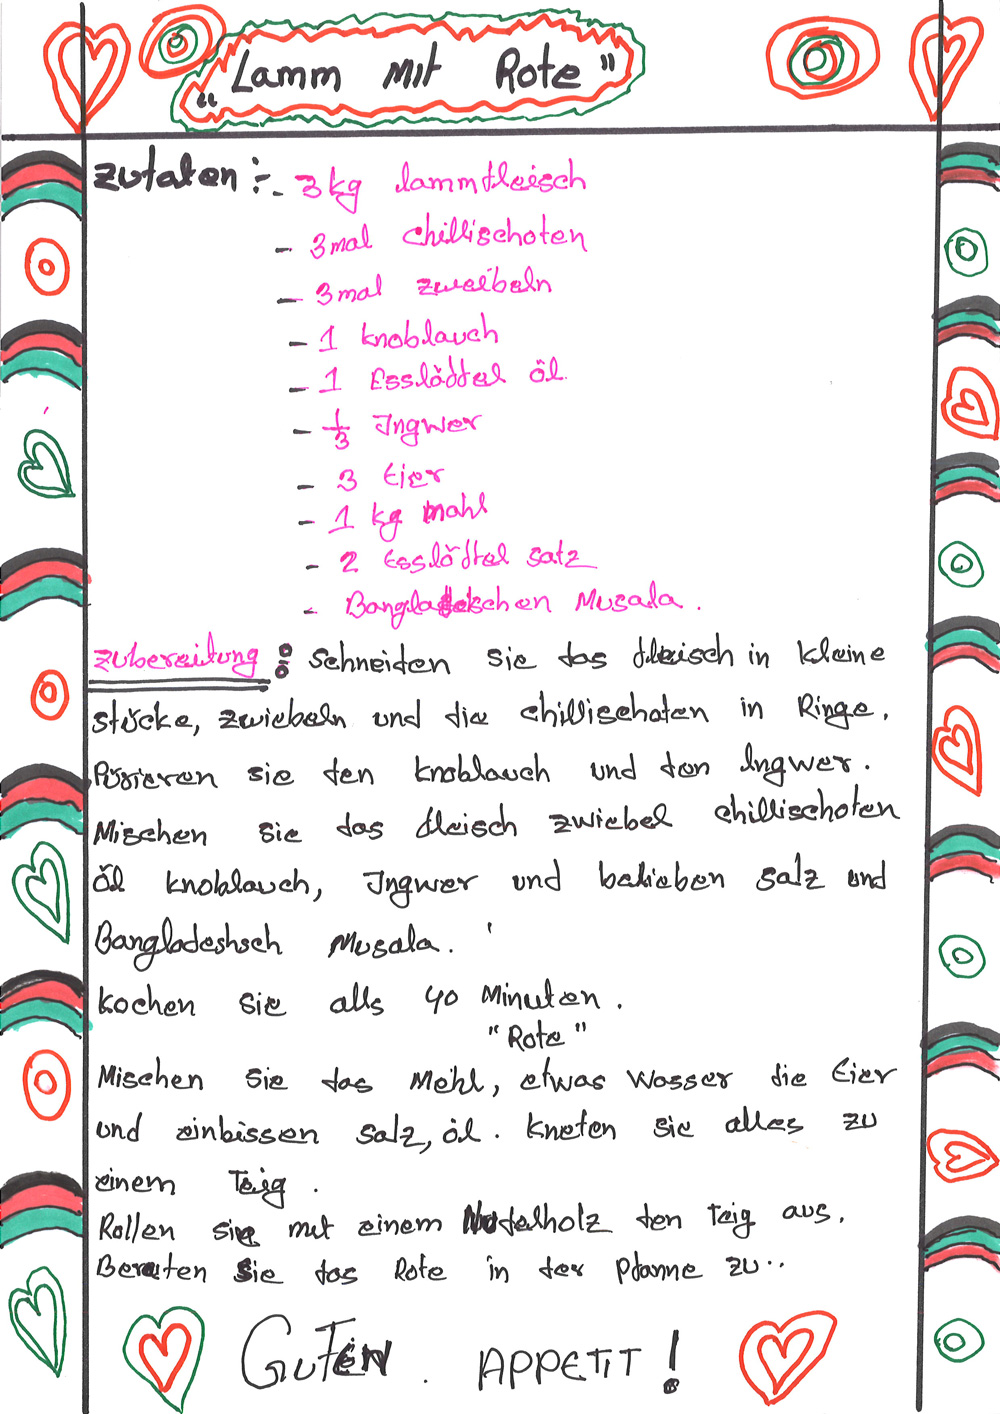 "Lamm mit Rote"
Zutaten :- - 3 kg lammfleisch
- 3 mal chillischoten
- 3 mal zweibeln
- 1 knoblauch
- 1 Esslöffel öl.
- 1/3 Ingwer
- 3 Eier
- 1 kg mahl
- 2 Esslöffel satz
- Bangladeschen Musala.
Zubereitung : Schneiden sie das fleisch in kleine
stücke, zwiebeln und die chillischoten in Ringe.
Püsieren sie den knoblauch und den Ingwer.
Mischen sie das fleisch zwiebel chillischoten
öl knoblauch, Ingwer und belieben salz und
Bangladeshsch Musala.
kochen sie alls 40 Minuten.
"Rote"
Mischen sie das Mehl, etwas Wasser die Eier
und einbissen salz, öl. kneten sie alles zu
einem Teig.
Rollen sie mit einem Nudelholz den Teig aus.
Beraten Sie das Rote in der Pfanne zu..
GUTEN. APPETIT!